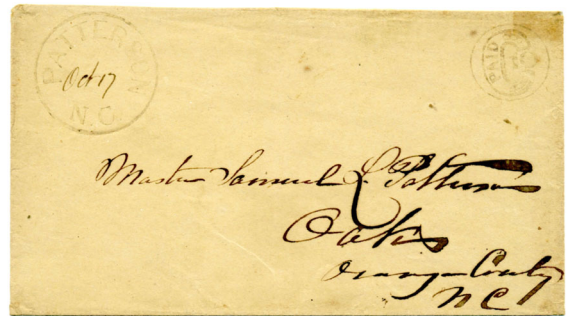 PATTERSON
Oct 17
N.C.
PAID
Master Samuel L. Patterson
Oaks
Orange County
NC